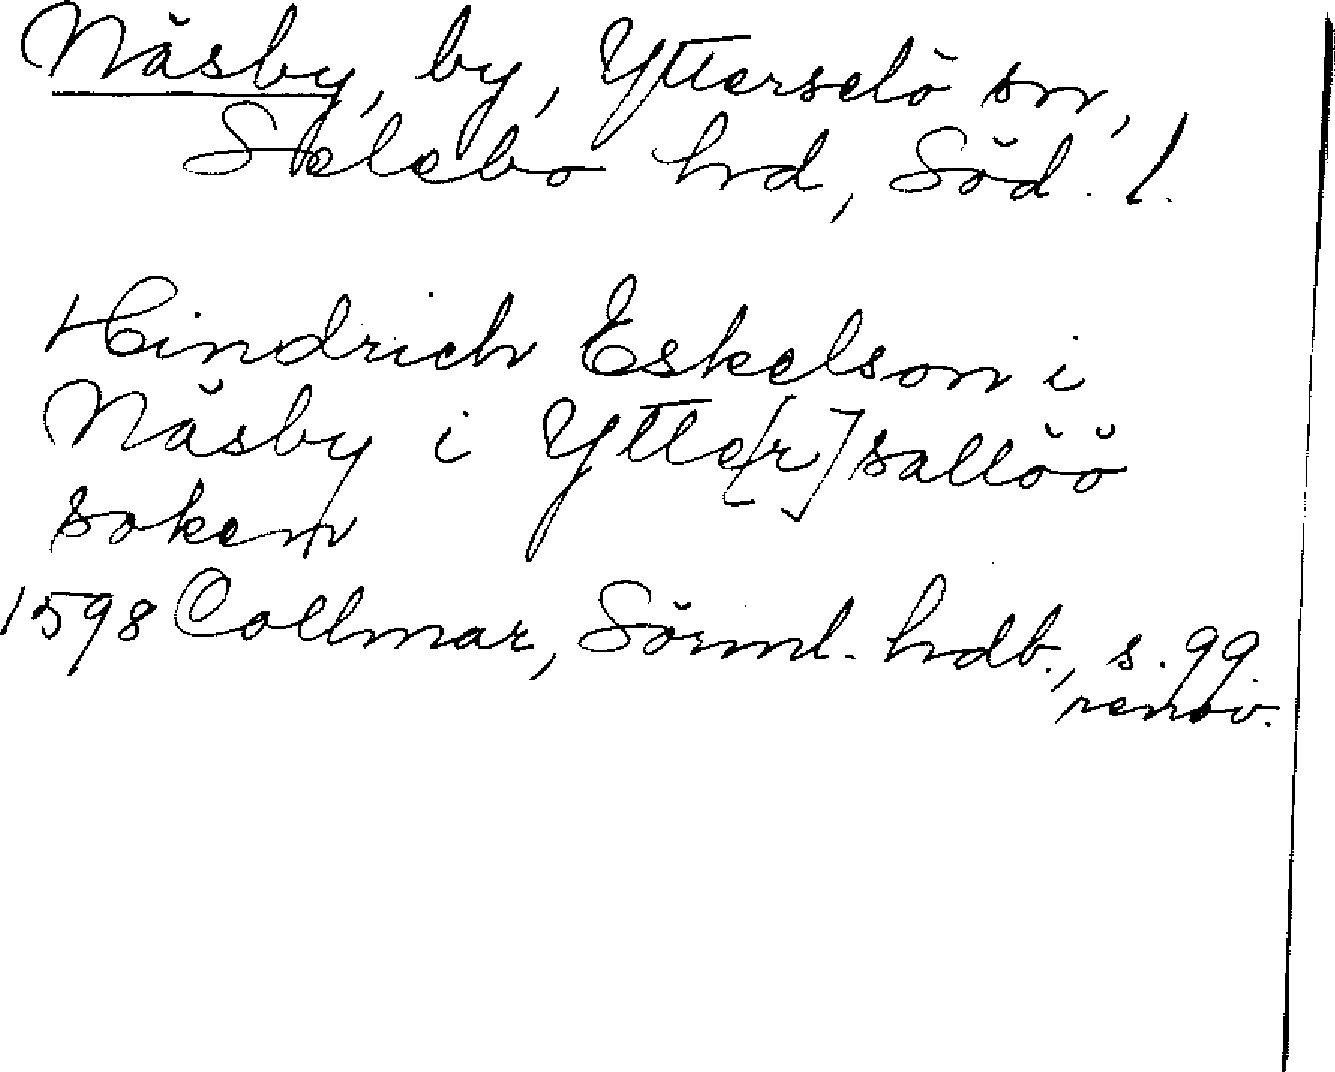 Näsby, by, Ytterselö sn,
Selebo hrd, Söd. l.
Hindrich Eskelson i
Näsby i Ytte[r]sallöö
soken
1598 Collmar, Sörml. hdb., s. 99.
renov.